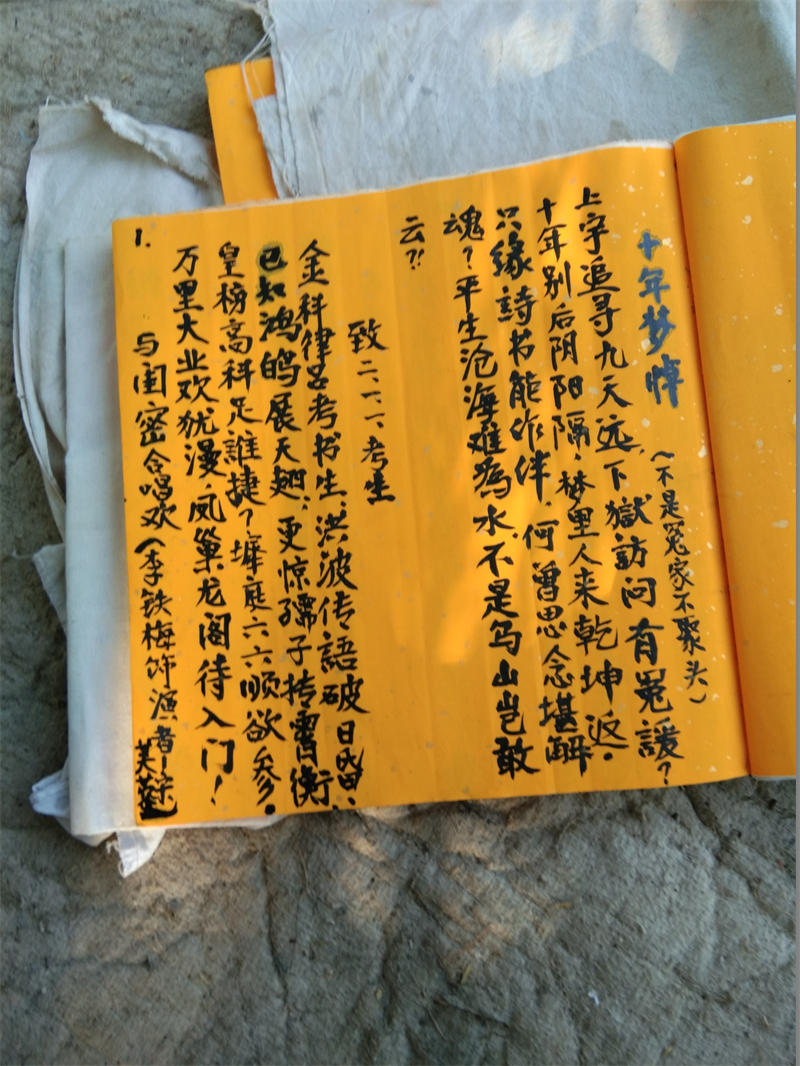 十年梦悼
(不是冤家不聚头)
上穷追寻九天远，下獄訪问有冤謾?
十年别后阴阳隔，梦里人来乾坤返。
只缘詩书能作伴，何曾思念堪酬
魂?平生沧海难為水，不是乌山岂敢
云?!
致二、一、一、考生
金科律吕考书生，洪波传語破日昏；
已知鸿鹄展天翅；更惊孺子抟霄衡
皇榜高科足誰捷?墀庭六六顺欲参。
万里大业欢犹漫，凤巢龙阁待入门!
1.
与闺密合唱欢(李铁梅饰演者